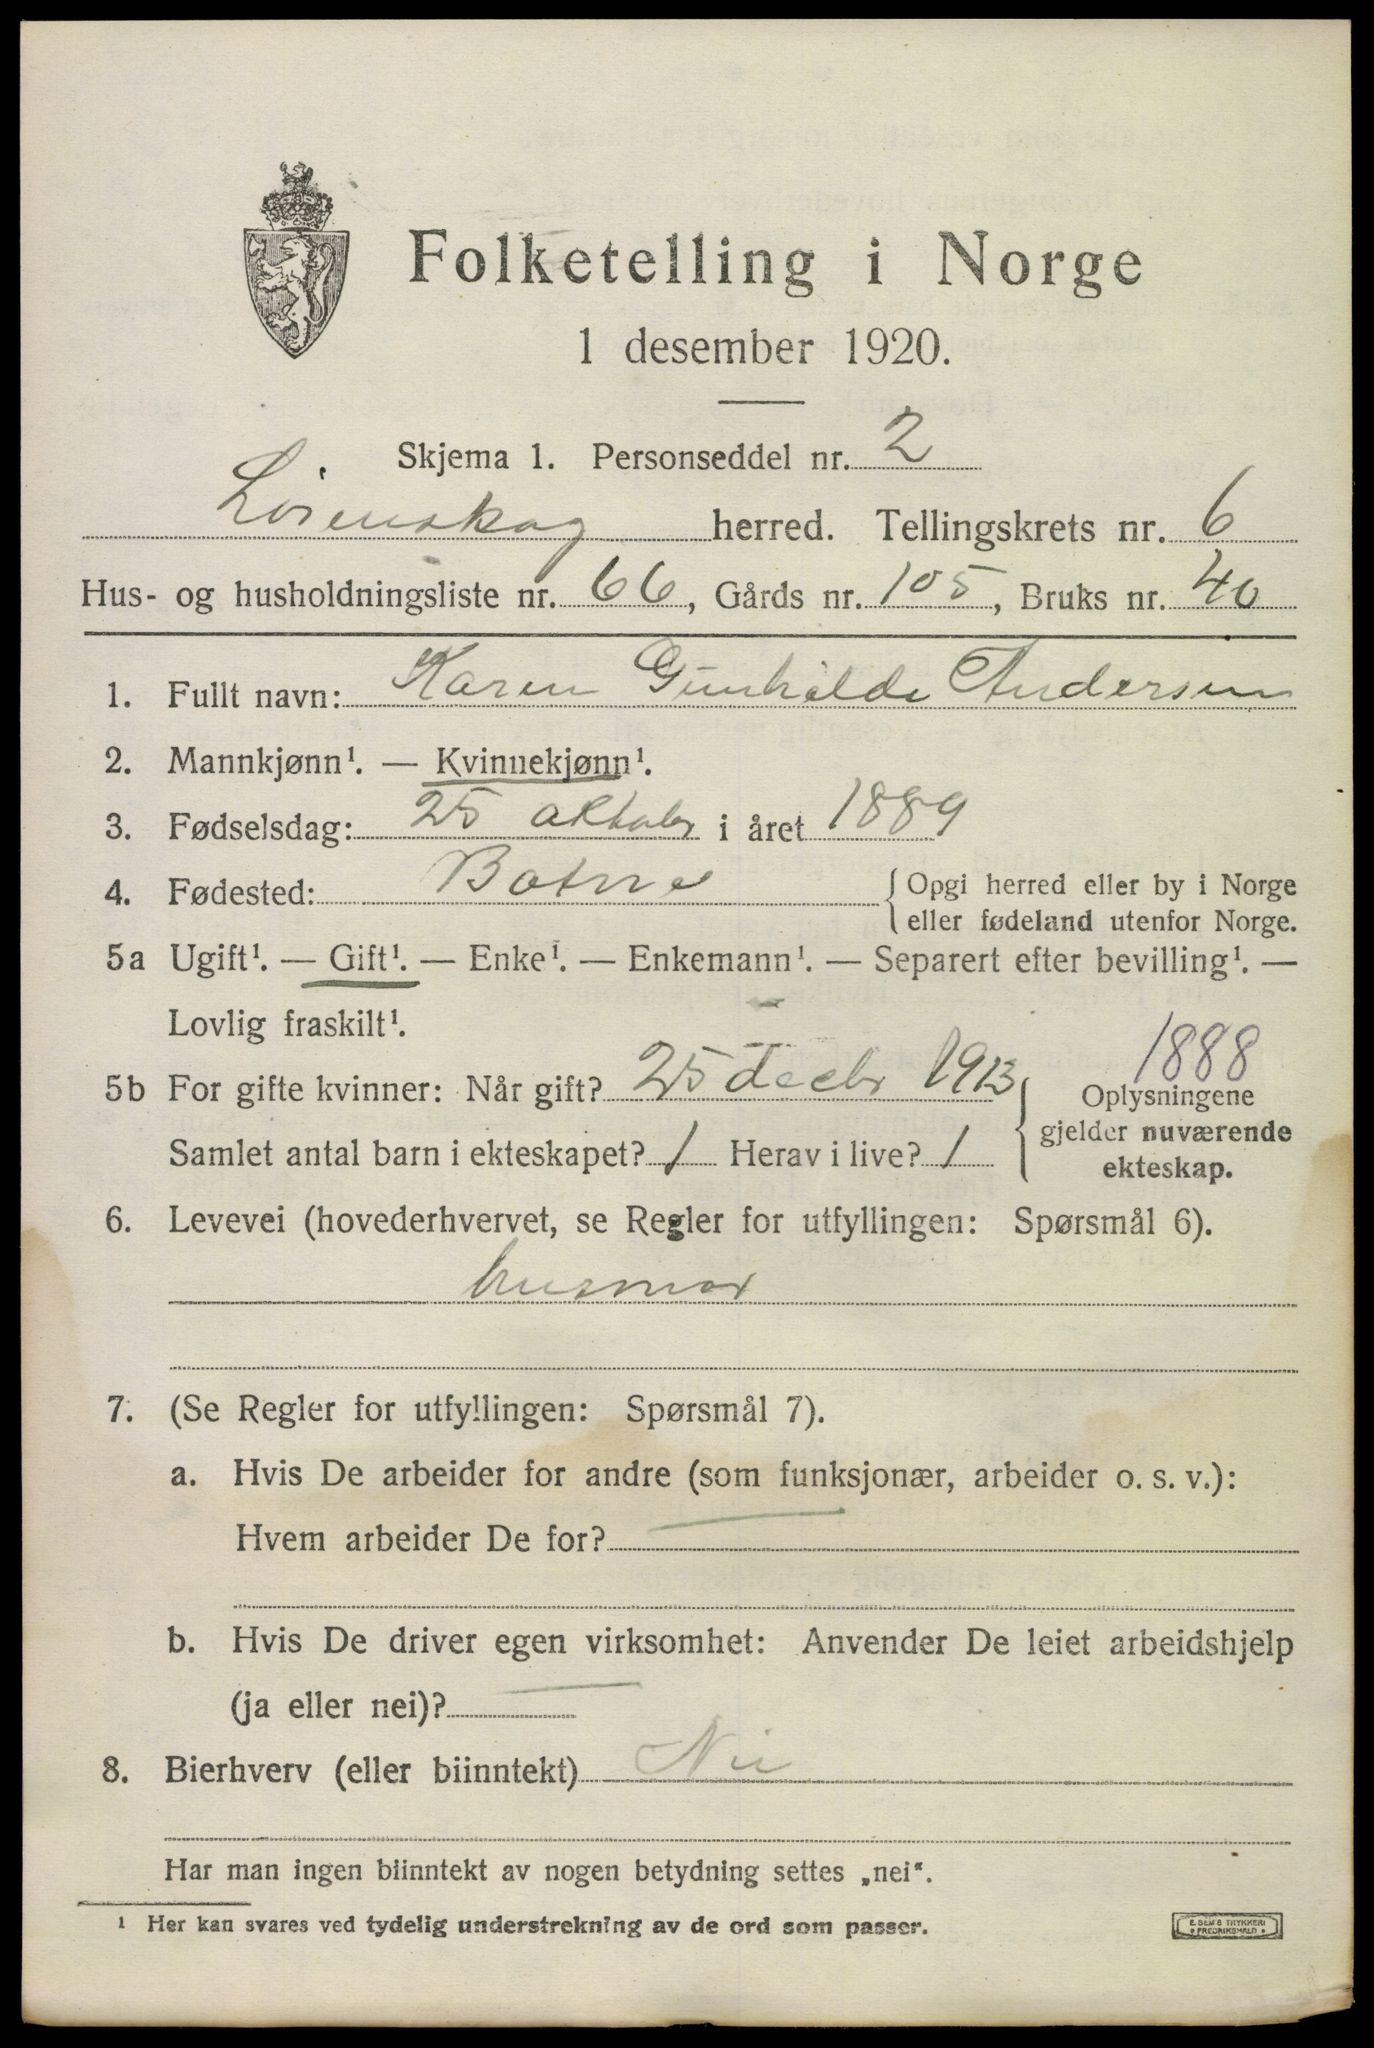 Folketelling i Norge
1 desember 1920.
Skjema 1. Personseddel nr. 2
Lørenskog herred. Tellingskrets nr. 6
Hus- og husholdningsliste nr. 66, Gårds nr. 105, Bruks nr. 40
1. Fullt navn: Karen Gunhilde Andersen
2. Mannkjønn¹. — Kvinnekjønn¹.
3. Fødselsdag: 25 oktober i året 1889
4. Fødested: Botne {Opgi herred eller by i Norge
eller fødeland utenfor Norge.
5a Ugift¹. — Gift¹. — Enke¹. — Enkemann¹. — Separert efter bevilling¹. —
Lovlig fraskilt¹.
1888
5b For gifte kvinner: Når gift? 25 decbr 1913 { Oplysningene
gjelder nuværende
Samlet antal barn i ekteskapet? 1 Herav i live? 1
ekteskap.
6. Levevei (hovederhvervet, se Regler for utfyllingen: Spørsmål 6).
husmor
7. (Se Regler for utfyllingen: Spørsmål 7).
a. Hvis De arbeider for andre (som funksjonær, arbeider o. s. v.):
Hvem arbeider De for? —
b. Hvis De driver egen virksomhet: Anvender De leiet arbeidshjelp
(ja eller nei)? —
8. Bierhverv (eller biinntekt) Nei
Har man ingen biinntekt av nogen betydning settes „nei“.
¹ Her kan svares ved tydelig understrekning av de ord som passer.
E. SEM'S TRYKKERI
• FREDRIKSHALD •